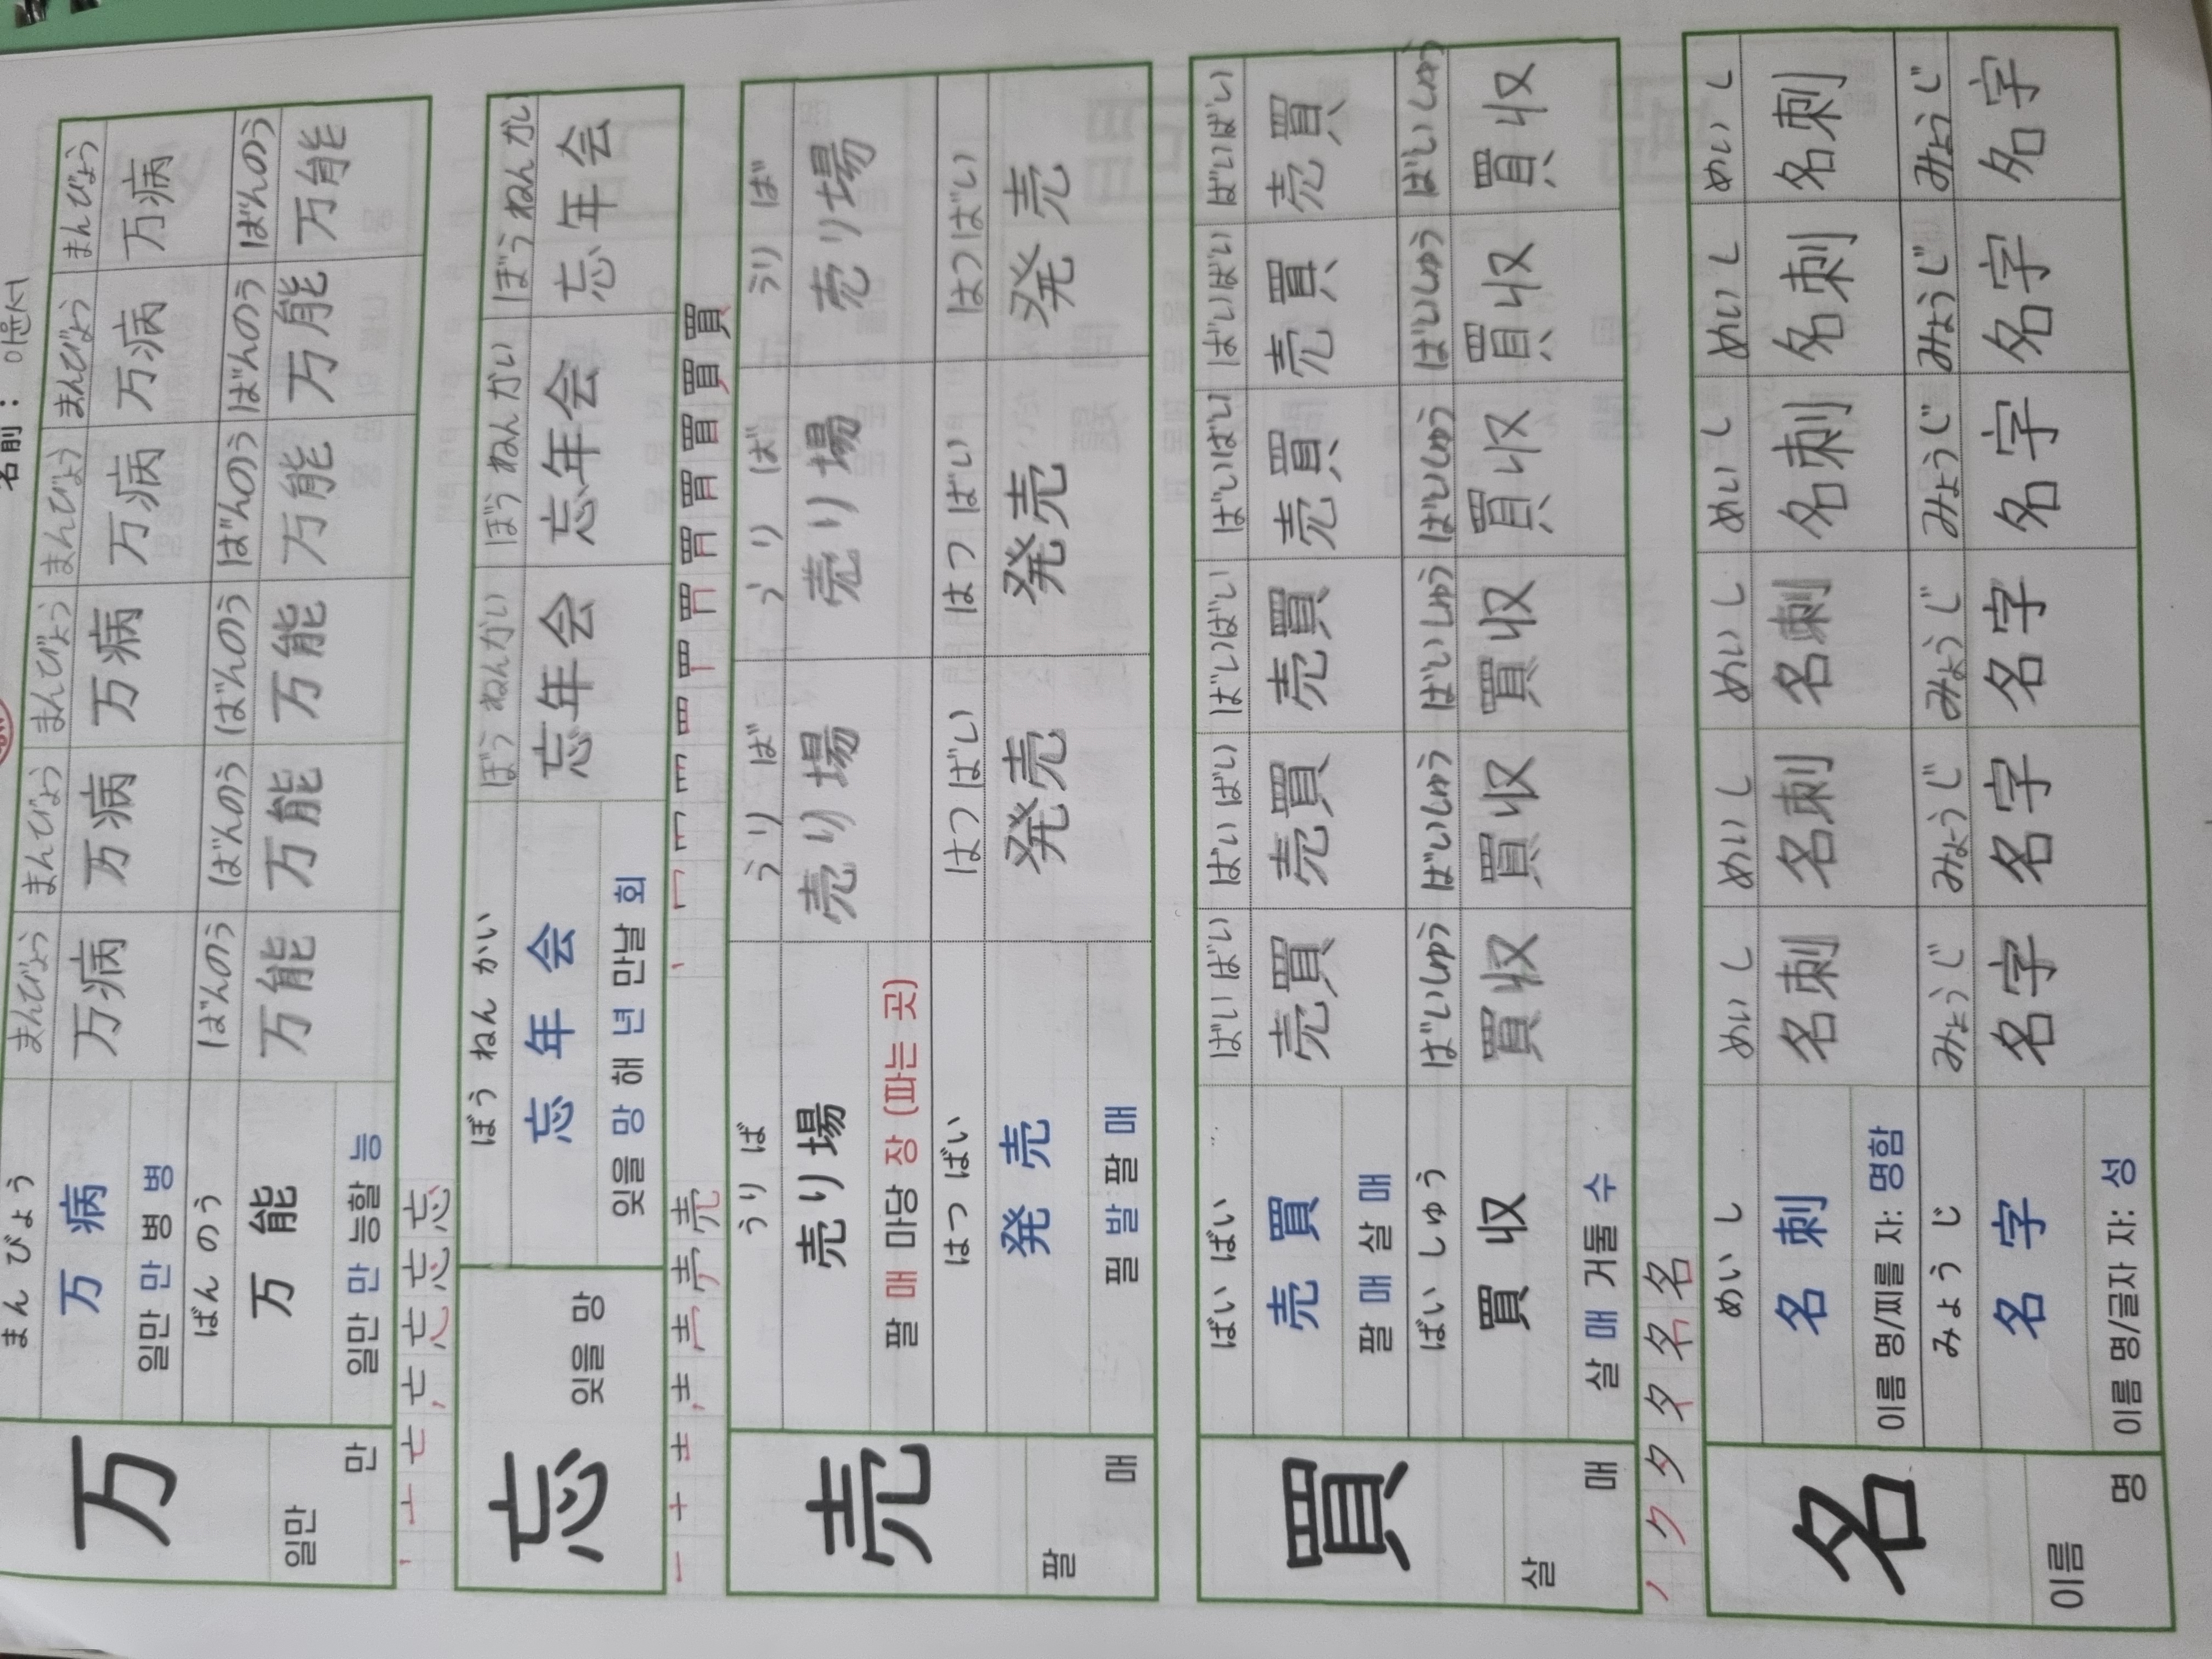 名前： 이윤서
まんびょう まんびょう まんびょう まんびょう まんびょう まんびょう まんびょう
万病 万病 万病 万病 万病 万病 万病
일만 만 병 병
ばんのう ばんのう ばんのう ばんのう ばんのう ばんのう ばんのう
万能 万能 万能 万能 万能 万能 万能
일만 만 능할 능
万
일만 만
ぼう ねん かい ぼう ねん かい ぼう ねん かい ぼう ねん かい
忘年会 忘年会 忘年会 忘年会
잊을 망 해 년 만날 회
忘
잊을 망
うり ば うり ば うり ば うり ば
売り場 売り場 売り場 売り場
팔 매 마당 장 (파는 곳)
はつ ばい はつ ばい はつ ばい はつばい
発売 発売 発売 発売
필 발 팔 매
売
팔 매
ばい ばい ばい ばい ばい ばい ばいばい ばいばい ばいばい ばいばい
売買 売買 売買 売買 売買 売買 売買
팔 매 살 매
ばい しゅう ばいしゅう ばいしゅう ばいしゅう ばいしゅう ばいしゅう ばいしゅう
買収 買収 買収 買収 買収 買収 買収
살 매 거둘 수
買
살 매
ノ ク タ タ 名 名
めい し めい し めい し めい し めい し めい し めい し
名刺 名刺 名刺 名刺 名刺 名刺 名刺
이름 명/찌를 자: 명함
みょう じ みょうじ みょうじ みょうじ みょうじ みょうじ みょうじ
名字 名字 名字 名字 名字 名字 名字
이름 명/글자 자: 성
名
이름 명